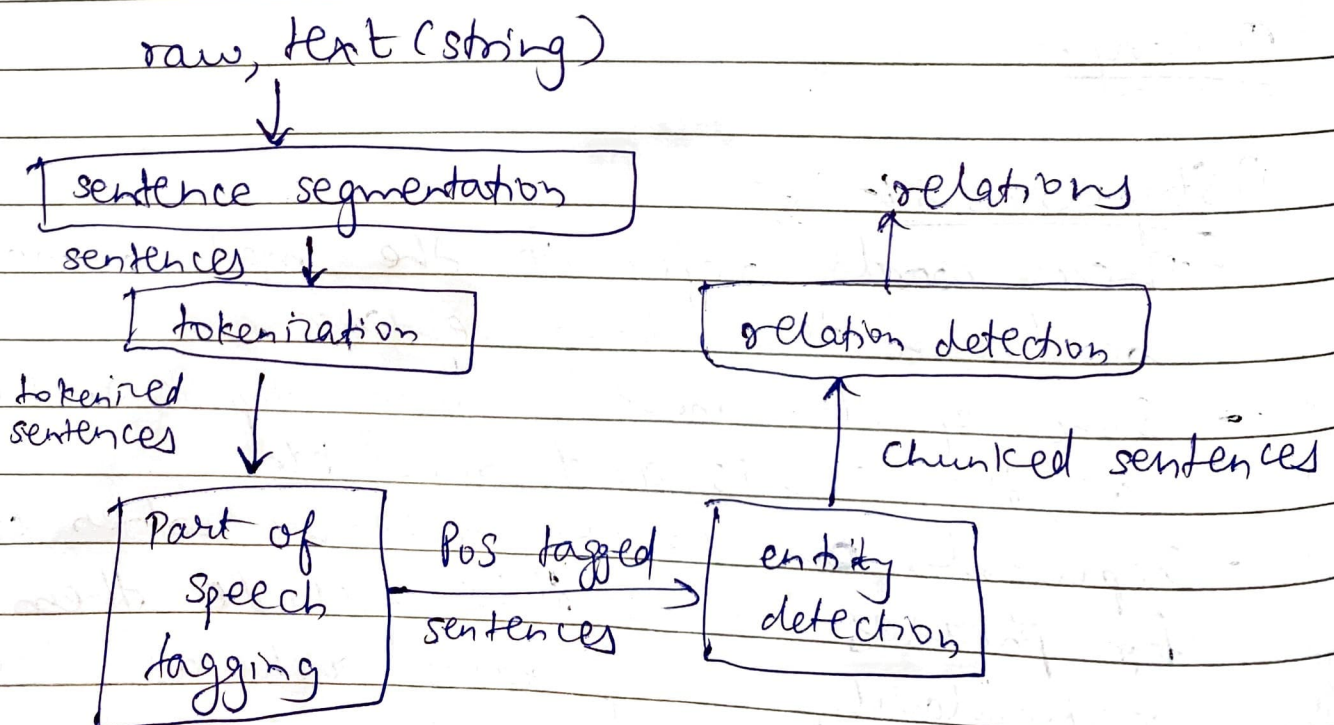 raw, text (string)
sentence segmentation
sentences
tokenization
tokenized
sentences
Part of
speech
tagging
PoS tagged
sentences
entity
detection
chunked sentences
relation detection
relations